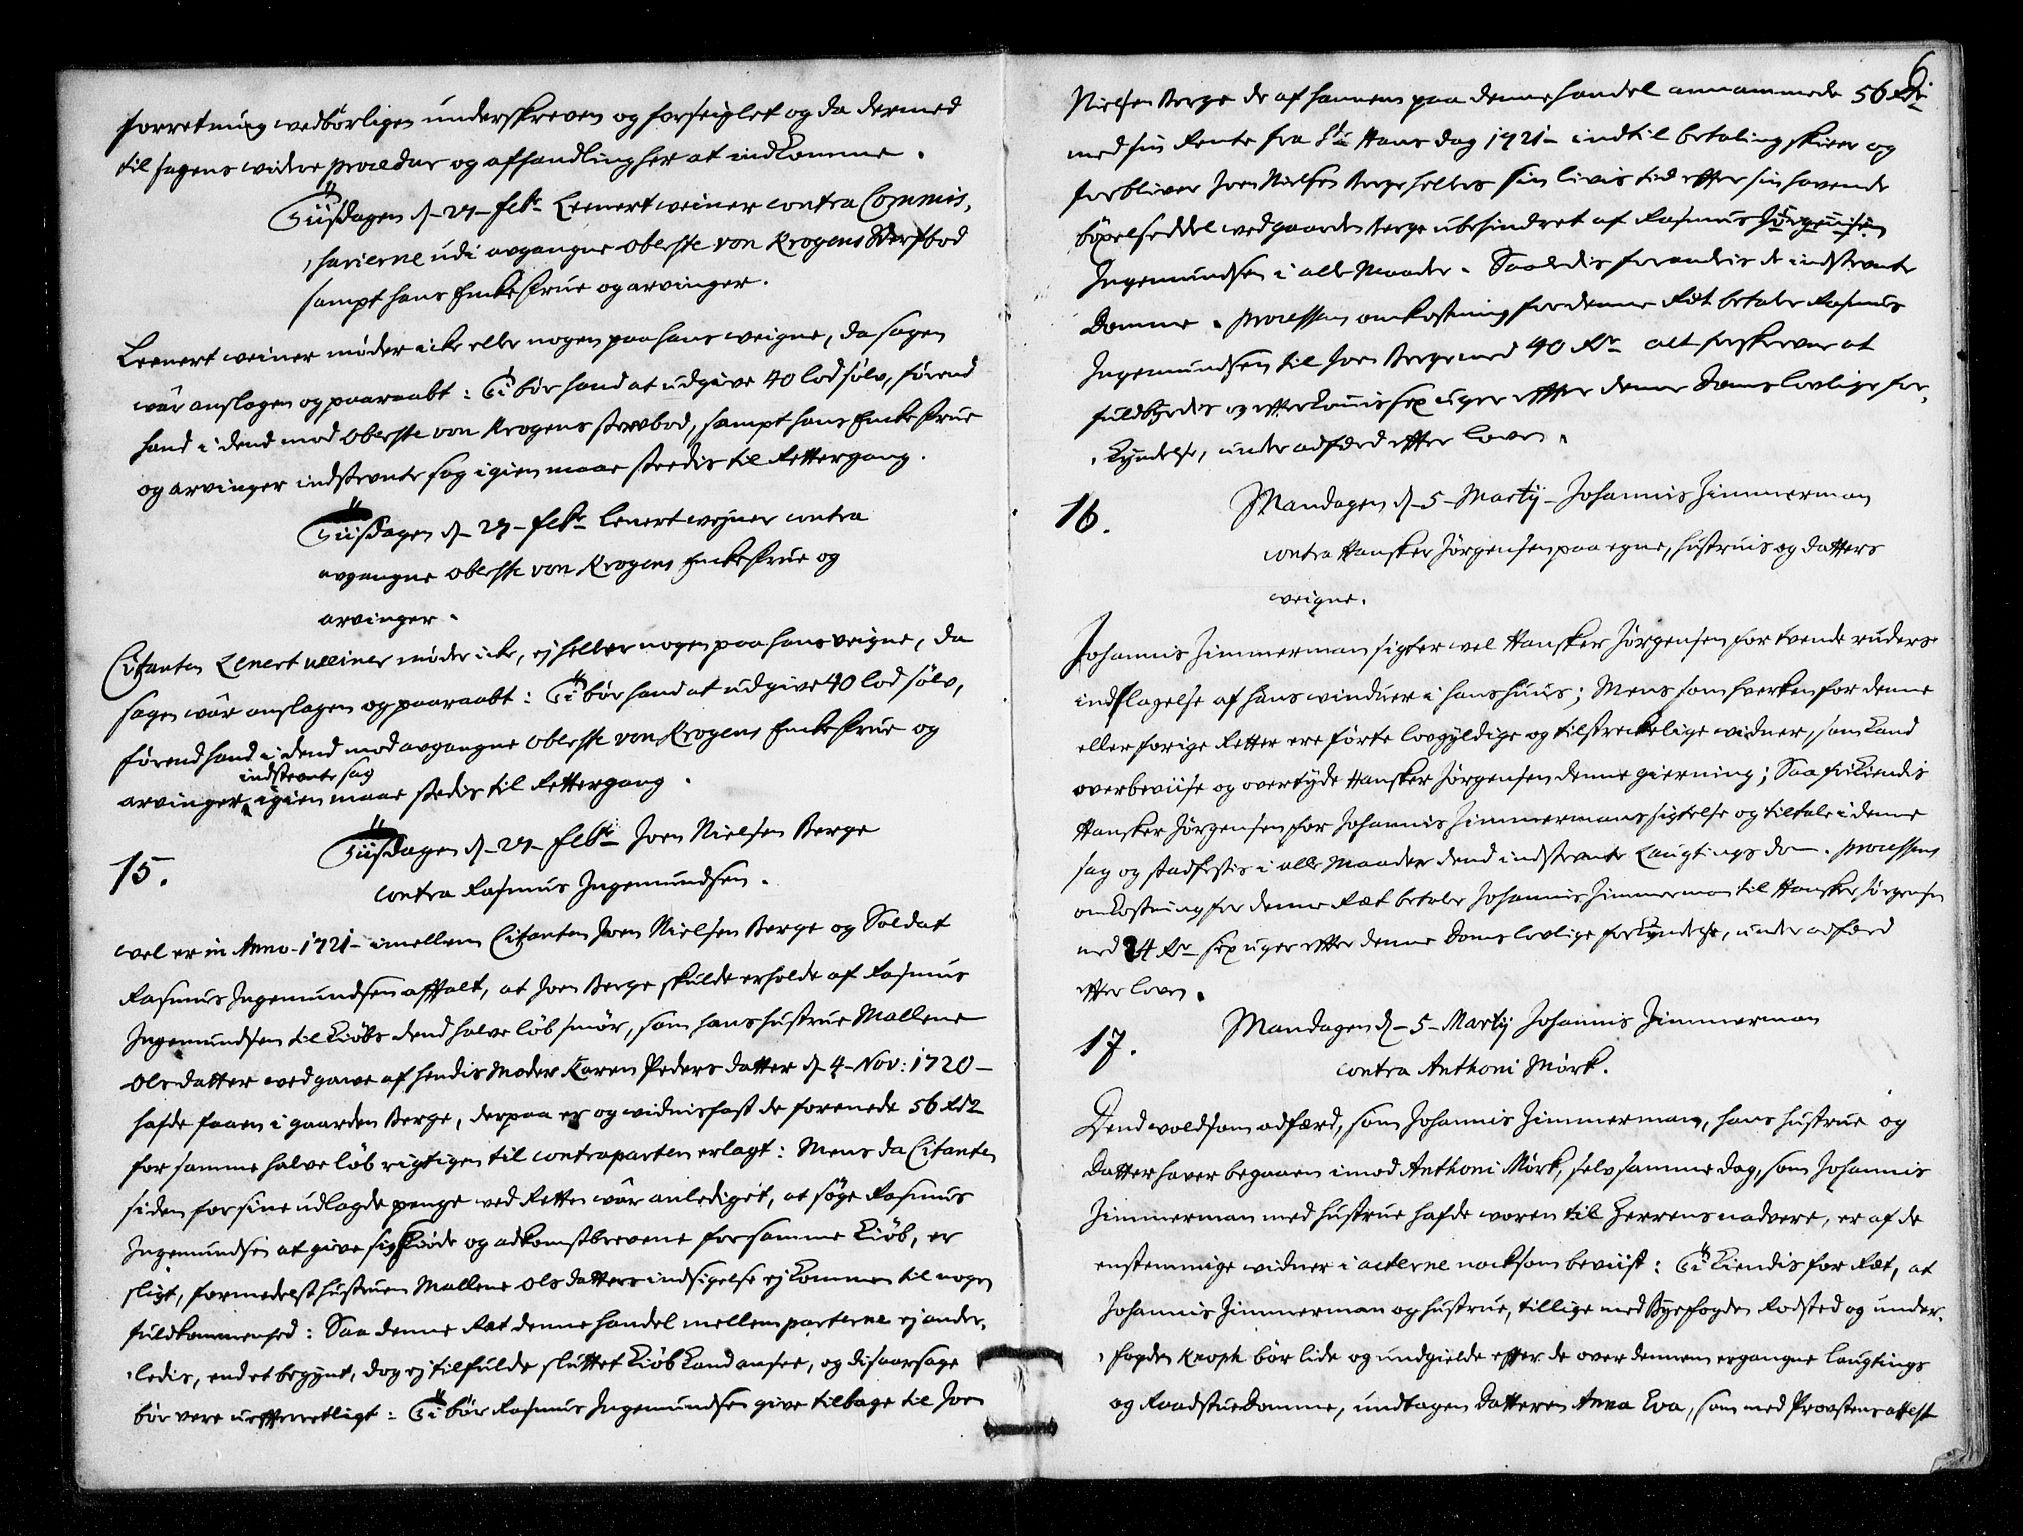 forretning wedbørligen underskreven og forseiglet og da dermed
til sagens widere procedur og afhandling her at indkomme.
Tiisdagen d. 27 feb: Leenert weiner contra Commis,
,sarierne udi avgangne oberste von Krogens Sterfbod
sampt hans Enkefrue og arvinger.
Leenert weiner møder icke eller nogen paa hans weigne, da sagen
wår anslagen og paaraabt: Ti bør hand at udgive 40 lod sølv, førend
hand i dend mod oberste von Krogens sterbod, sampt hans Enkefrue
og arvinger indstevnte sag igien maae stedis til Rettergang.
Tiisdagen d. 27 feb: Lenert wejner contra
avgangne oberste von Krogens Enkefrue og
arvinger.
Citanten Lenert weiner møder icke, ej heller nogen paa hans veigne, da
sagen wår anslagen og paaraabt: Ti bør hand at udgive 40 lod sølv,
førend hand i dend mod avgangne oberste von Krogens Enkefrue og
indstevnte sag
arvinger igien maae stedis til Rettergang.
15. Tiisdagen d. 27 feb: Joen Nielsen Berge
contra Rasmus Ingemundsen.
wel er in Anno 1721 imellem Citanten Joen Nielsen Berge og Soldat
Rasmus Ingemundsen afftalt, at Joen Berge skulde erholde af Rasmus
Ingemundsen til Kiøbs dend halve løb smør, som hans hustrue Mallene
Olsdatter wed gawe af hendis Moder Karen Pedersdatter d. 4 Nov: 1720
hafde faaen i gaarden Berge, derpaa er og widnisfast de forenede 56 Rdr
for samme halve løb rigtigen til contraparten erlagt: Mens da Citanten
siden for sine udlagde penge wed Retten wår anlediget, at søge Rasmus
Ingemundsen at give sig skiøde og adkomstbrevene for samme Kiøb, er
sligt, formedelst hustruen Mallene Olsdatters indsigelse ej kommen til nogen
fuldkommenhed: Saa denne Ræt denne handel mellem parterne ej ander,
,ledis, end et begynt, dog ej tilfulde sluttet Kiøb kand ansee, og disaarsage
bør vere uefterretligt: Ti bør Rasmus Ingemundsen give tilbage til Joen
6
Nielsen Berge de af hannem paa denne handel annammede 56 Rdr
med sin Rente fra St: Hans dag 1721 indtil betaling skeer og
forbliver Joen Nielsen Berge hellers sin livis tid efter sin havende
bøxelseddel wed gaarden Berge ubehindret af Rasmus Jørgensen
Ingemundsen i alle Maader. Saaledis forandris de indstevnte
Domme. Processens omkostning for denne Ræt betaler Rasmus
Ingemundsen til Joen Berge med 40 Rdr alt forskrevne at
fuldbyrdes og efterkommis sex uger effter denne Doms lovlige for,
,kyndelse, under adfærd effter loven.
16. Mandagen d. 5 Martij Johannis Zimmerman
contra Hansker Jørgensen paa egne, hustruis og datters
weigne.
Johannis Zimmerman sigter wel Hansker Jørgensen for tvende ruders
indslagelse af hans winduer i hans huus; Mens som hverken for denne
eller forige Retter ere førte lovgyldige og tilstreckelige widner, som kand
overbeviise og overtyde Hansker Jørgensen denne gierning; Saa frikiendis
Hansker Jørgensen for Johannis Zimmermans sigtelse og tiltale i denne
sag og stadfestis i alle Maader dend indstevnte Laugtings dom. Processens
omkostning for denne Ræt betaler Johannis Zimmerman til Hansker Jørgensen
med 24 Rdr sex uger effter denne Doms lovlige forkyndelse, under adfærd
effter loven.
17. Mandagen d. 5 Martij Johannis Zimmerman
contra Anthoni Mørk.
Dend woldsom adfærd, som Johannis Zimmerman, hans hustrue og
Datter haver begaaen imod Anthoni Mørk, selv samme dag, som Johannis
Zimmerman med hustrue hafde woren til Herrens nadvere, er af de
enstemmige widner i acterne nocksom beviist: Ti kiendis for Ræt, at
Johannis Zimmerman og hustrue, tillige med Byefogden Rodsted og under,
,fogden Kroph bør lide og undgielde effter de over dennem ergangne Laugtings
og Raadstue Domme, undtagen Datteren Anna Eva, som med Provstens attest